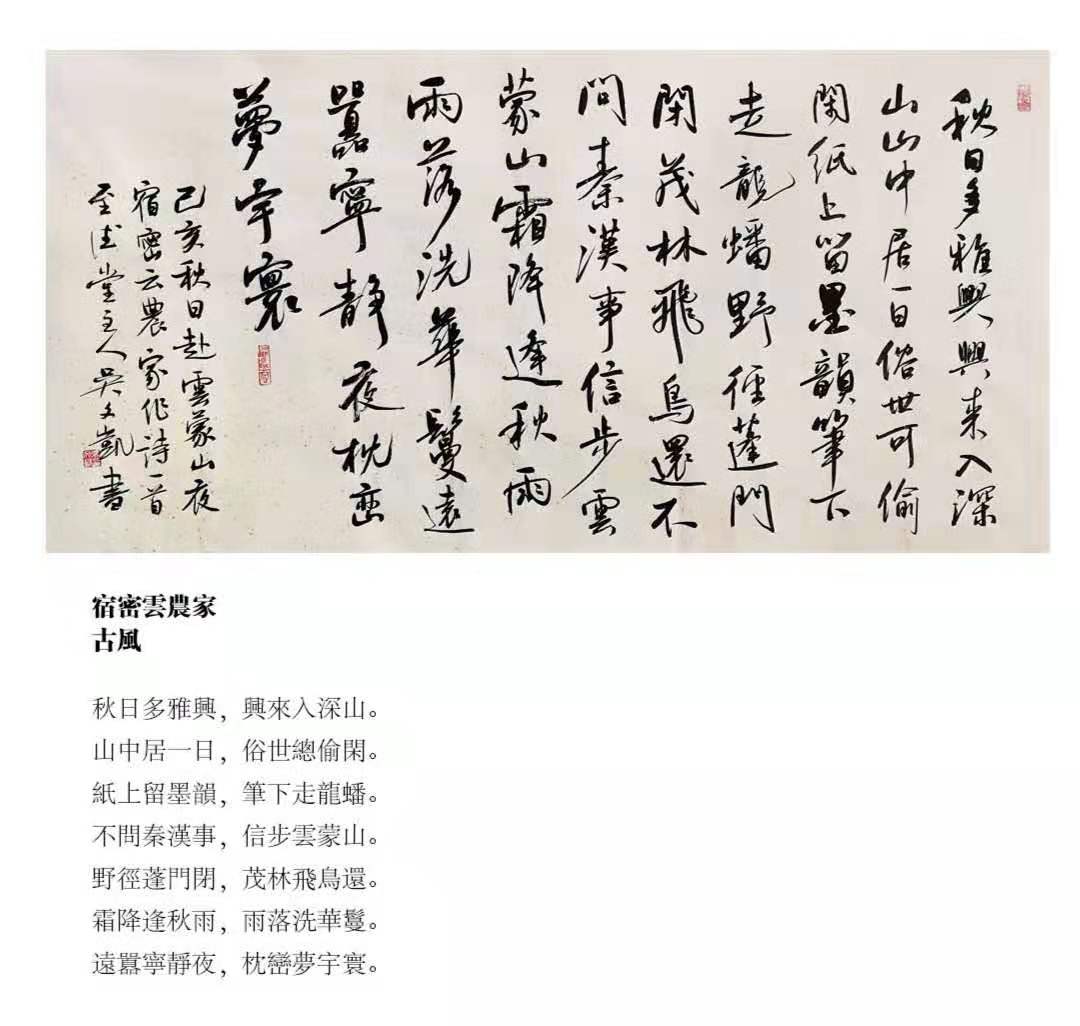 秋日多雅興興来入深
山山中居一日俗世可偷
閑紙上留墨韻筆下
走龍蟠野徑蓬門
閉茂林飛鳥還不
問秦漢事信步雲
蒙山霜降逢秋雨
雨落洗華鬘遠
囂寧靜夜枕巒
夢宇寰
己亥秋日赴雲蒙山夜
宿密云農家作詩一首
至堂主人吴文凱書
宿密雲農家
古風
秋日多雅興，興來入深山。
山中居一日，俗世總偷閑。
紙上留墨韻，筆下走龍蟠。
不問秦漢事，信步雲蒙山。
野徑蓬門閉，茂林飛鳥還。
霜降逢秋雨，雨落洗華鬘。
遠囂寧靜夜，枕巒夢宇寰。